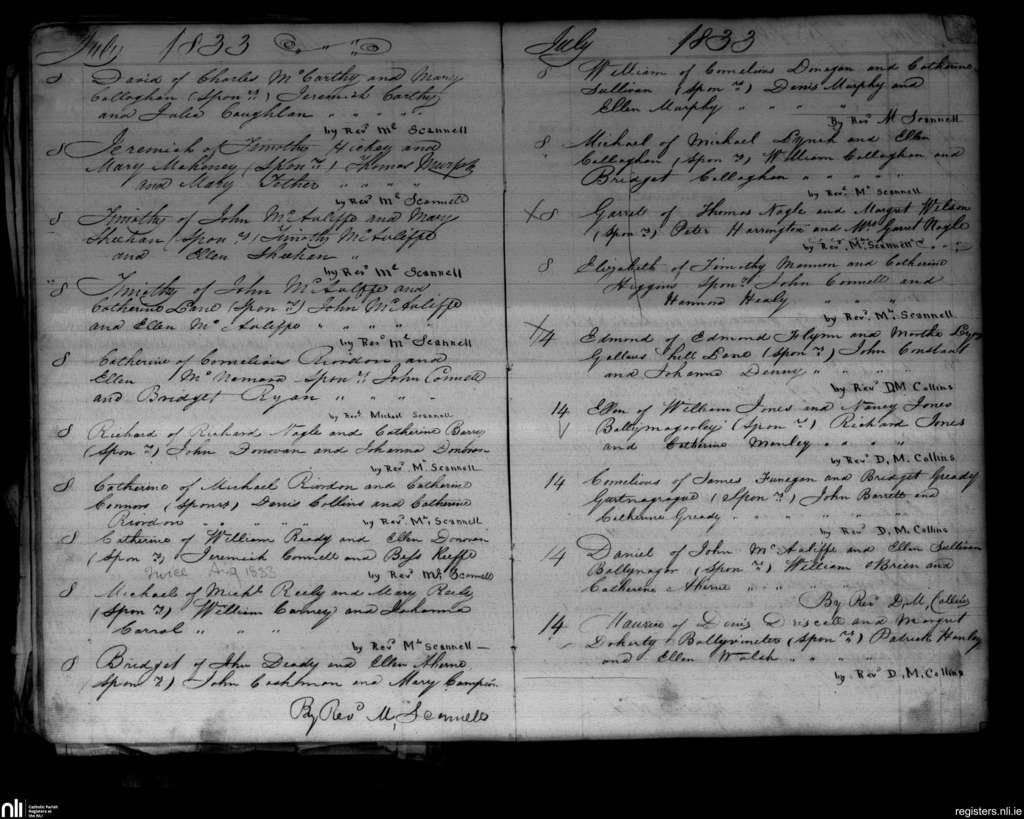 July 1833
8 David of Charles McCarthy and Mary
Callaghan (Spon rs) Jeremiah Carthy
and Julia Coughlan " " " "
by Revd Mc Scannell
8 Jeremiah of Timothy Hickey and
Mary Mahoney (Spon rs) Thomas Murphy
and Mary Tother " " " "
by Revd Mc Scannell
8 Timothy of John McAuliffe and Mary
Sheehan (Spon rs) Timothy McAuliffe
and Ellen Sheehan "
by Revd Mc Scannell
"8 Timothy of John McAuliffe and
Catherine Lane (Spon rs) John McAuliffe
and Ellen McAuliffe " " " " "
by Revd Mc Scannell
8 Catherine of Cornelious Riordon and
Ellen McNamara Spon rs John Connell
and Bridget Ryan " " " -
by Revd Michael Scannell
8 Richard of Richard Nagle and Catherine Barry
(Spon rs) John Donovan and Johanna Donovan
by Revd M. Scannell
8 Catherine of Michael Riordon and Catherine
Connors (Sponrs) Denis Collins and Catherine
Riordon " " " " by Revd Ml, Scannell
8 Catherine of William Ready and Ellen Donovan
(Spon rs) Jeremiah Connell and Bess Keeffe
twice Aug 1833
by Revd Ml Scannell
8 Michael of Michl Reily and Mary Reily
(Spon rs) William Carney and Johanna
Carrol " " "
by Revd Ml Scannell —
8 Bridget of John Deady and Ellen Aherne
(Spon rs) John Cashman and Mary Campion
By Revd M, Scannell
July 1833
8 William of Cornelious Donegan and Catherine
Sullivan (Spon rs) Denis Murphy and
Ellen Murphy " " " " "
By Revd M Scannell
8 Michael of Michael Lynch and Ellen
Callaghan (Spon rs) William Callaghan and
Bridget Callaghan " " " "
by Revd Ml Scannell
X 8 Garrett of Thomas Nagle and Margret Wilson
(Spon rs) Peter Harrington and Mrs Garret Nagle
by Revd, M, Scannell " " "
8 Elizabeth of Timothy Mannon and Catherine
Higgins Sponrs John Connell and
Hannora Healy " " "
by Revd Ml, Scannell.
X 14 Edmond of Edmond Flynn and Martha
Gallows hill Lane (Spon rs) John Constant
and Johanna Denny " " " "
by Revd DM Collins
14 Ellen of William Jones and Nancy Jones
Ballymagooley (Spon rs) Richard Jones
and Catherine Manley " " " "
by Revd D, M, Collins
14 Cornelious of James Funegan and Bridget Gready
Gortnagrague (Spon rs) John Barrett and
Catherine Gready " " " " "
by Revd D, M, Collins
14 Daniel of John McAuliffe and Ellen Sullivan
Ballynagor (Spon rs) William OBrien and
Catherine Aherne " " "
By Revd D, M, Collins
14 Maurice of Denis Driscoll and Margret
Doherty Ballyvineter (Spon rs) Patrick Hanley
and Ellen Walsh " " " "
by Revd D, M, Collins
nli Catholic Parish
Registers at
the NLI
registers.nli.ie